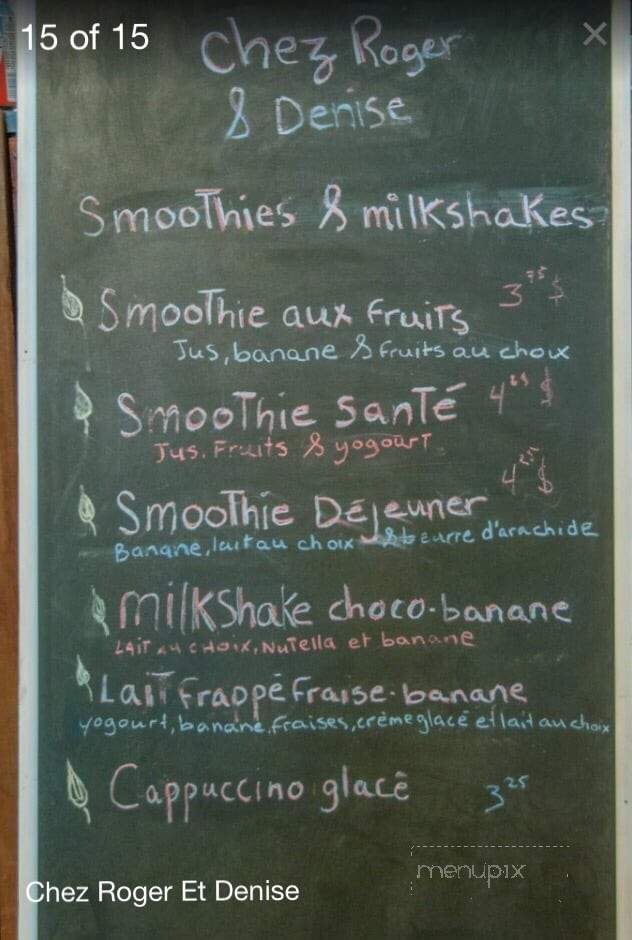 15 of 15
Chez Roger
& Denise
Smoothies & milkshakes
Smoothie aux Fruits 3 75 $
Jus, banane & fruits au choix
Smoothie Santé 4 $
Jus. Fruits & yogourt
Smoothie Déjeuner 4 25 $
Banane, lait au choix & beurre d'arachide
milkshake choco-banane
Lait au choix, Nutella et banane
Lait Frappé Fraise-banane
yogourt, banane, fraises, crème glacé et lait au choix
Cappuccino glacé 3 25
menupix
Chez Roger Et Denise